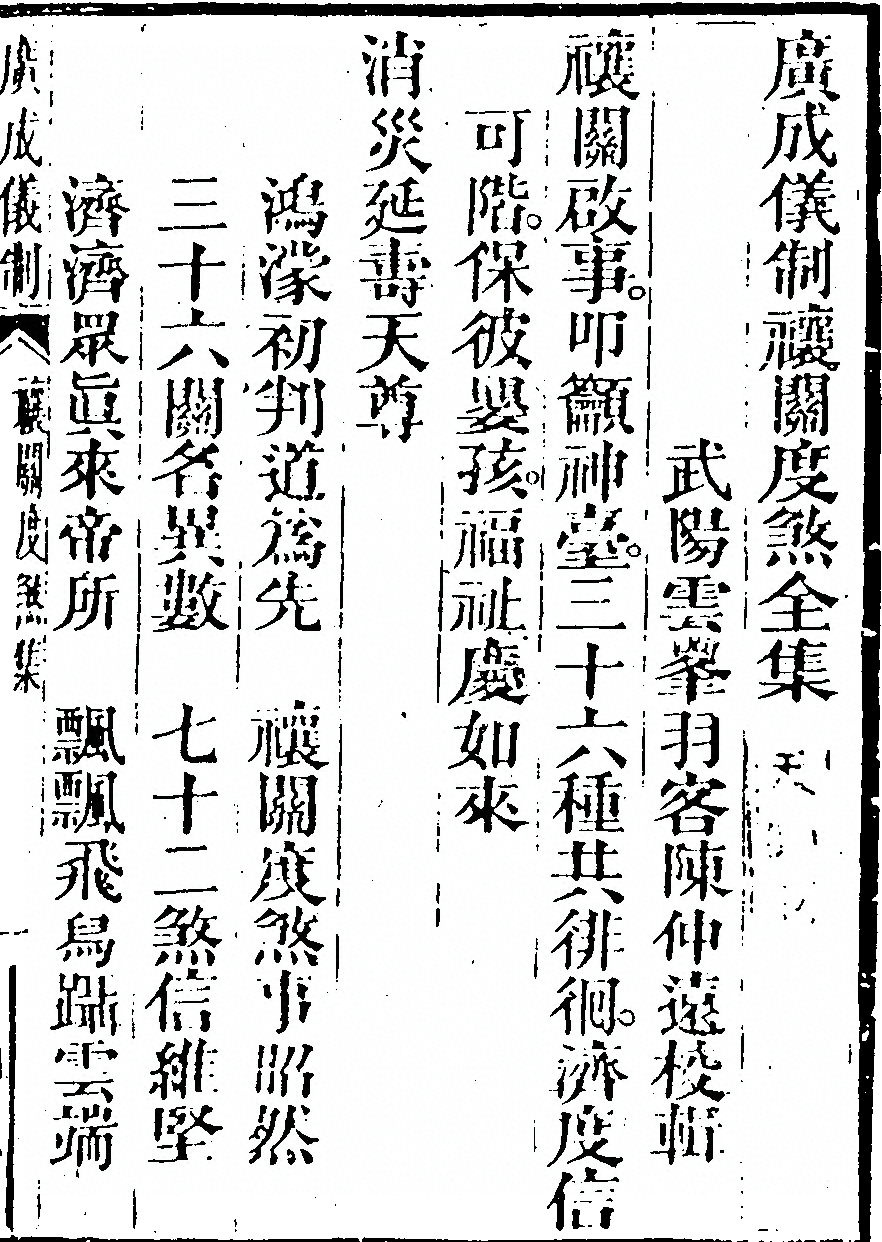 廣成儀制禳關度煞全集
武陽雲峯羽客陳仲遠校輯
禳關啟事。叩籲神臺。三十六種共徘徊。濟度信
可階。保彼嬰孩。福祉慶如來
消災延壽天尊
鴻濛初判道為先 禳關度煞事昭然
三十六關名異數 七十二煞信維堅
濟濟眾眞來帝所 飄飄飛舄躡雲端
廣成儀制 禳關度煞集